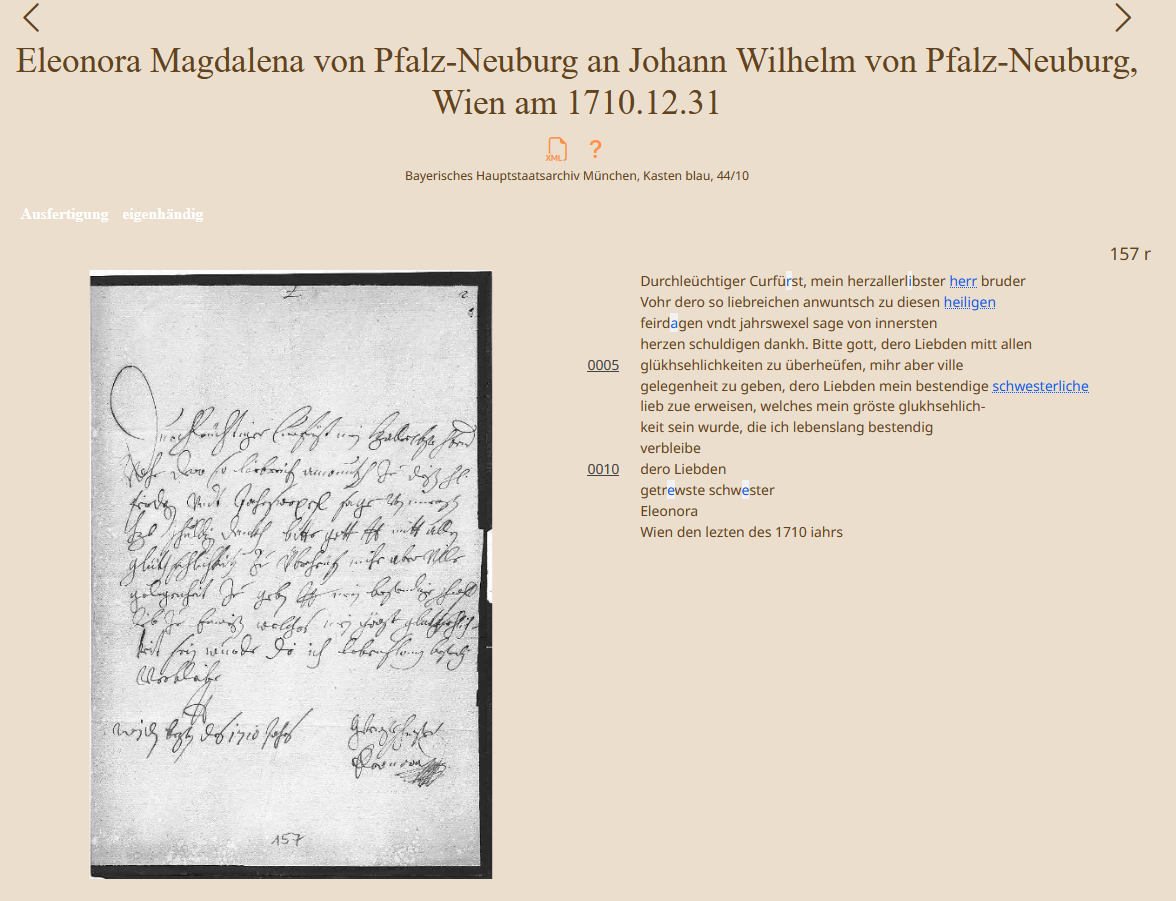 Eleonora Magdalena von Pfalz-Neuburg an Johann Wilhelm von Pfalz-Neuburg,
Wien am 1710.12.31
XML ?
Bayerisches Hauptstaatsarchiv München, Kasten blau, 44/10
Ausfertigung eigenhändig
157 r
Durchleüchtiger Curfürst, mein herzallerlibster herr bruder
Vohr dero so liebreichen anwuntsch zu diesen heiligen
feirdagen vndt jahrswexel sage von innersten
herzen schuldigen dankh. Bitte gott, dero Liebden mitt allen
0005 glükhsehlichkeiten zu überheüfen, mihr aber ville
gelegenheit zu geben, dero Liebden mein bestendige schwesterliche
lieb zue erweisen, welches mein gröste glukhsehlich-
keit sein wurde, die ich lebenslang bestendig
verbleibe
0010 dero Liebden
getrewste schwester
Eleonora
Wien den lezten des 1710 iahrs
157